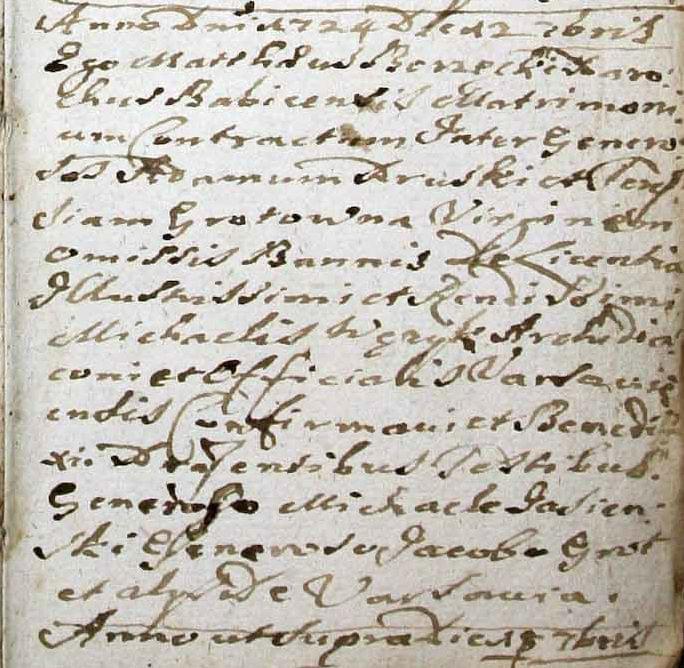 Anno Dni 1724 Die 12 7bris
Ego Matthæus Borzecki Paro:
chus Babicensis Matrimoni:
um Contractum Inter Genero:
sos Adamum Pruski et There
siam Grotowna Virginem
omissis Bannis de Licentia
Illustrissimi et Rendissimi
Michaelis Archidia:
coni et Officialis Varsavi
ensis Confirmavi et Benedi
xi. Præsentibus Testibus.
Generoso Michaele Jasien:
ski Generoso Jacobo Grot
et alys De Varsavia.
Anno ut supra die 7bris